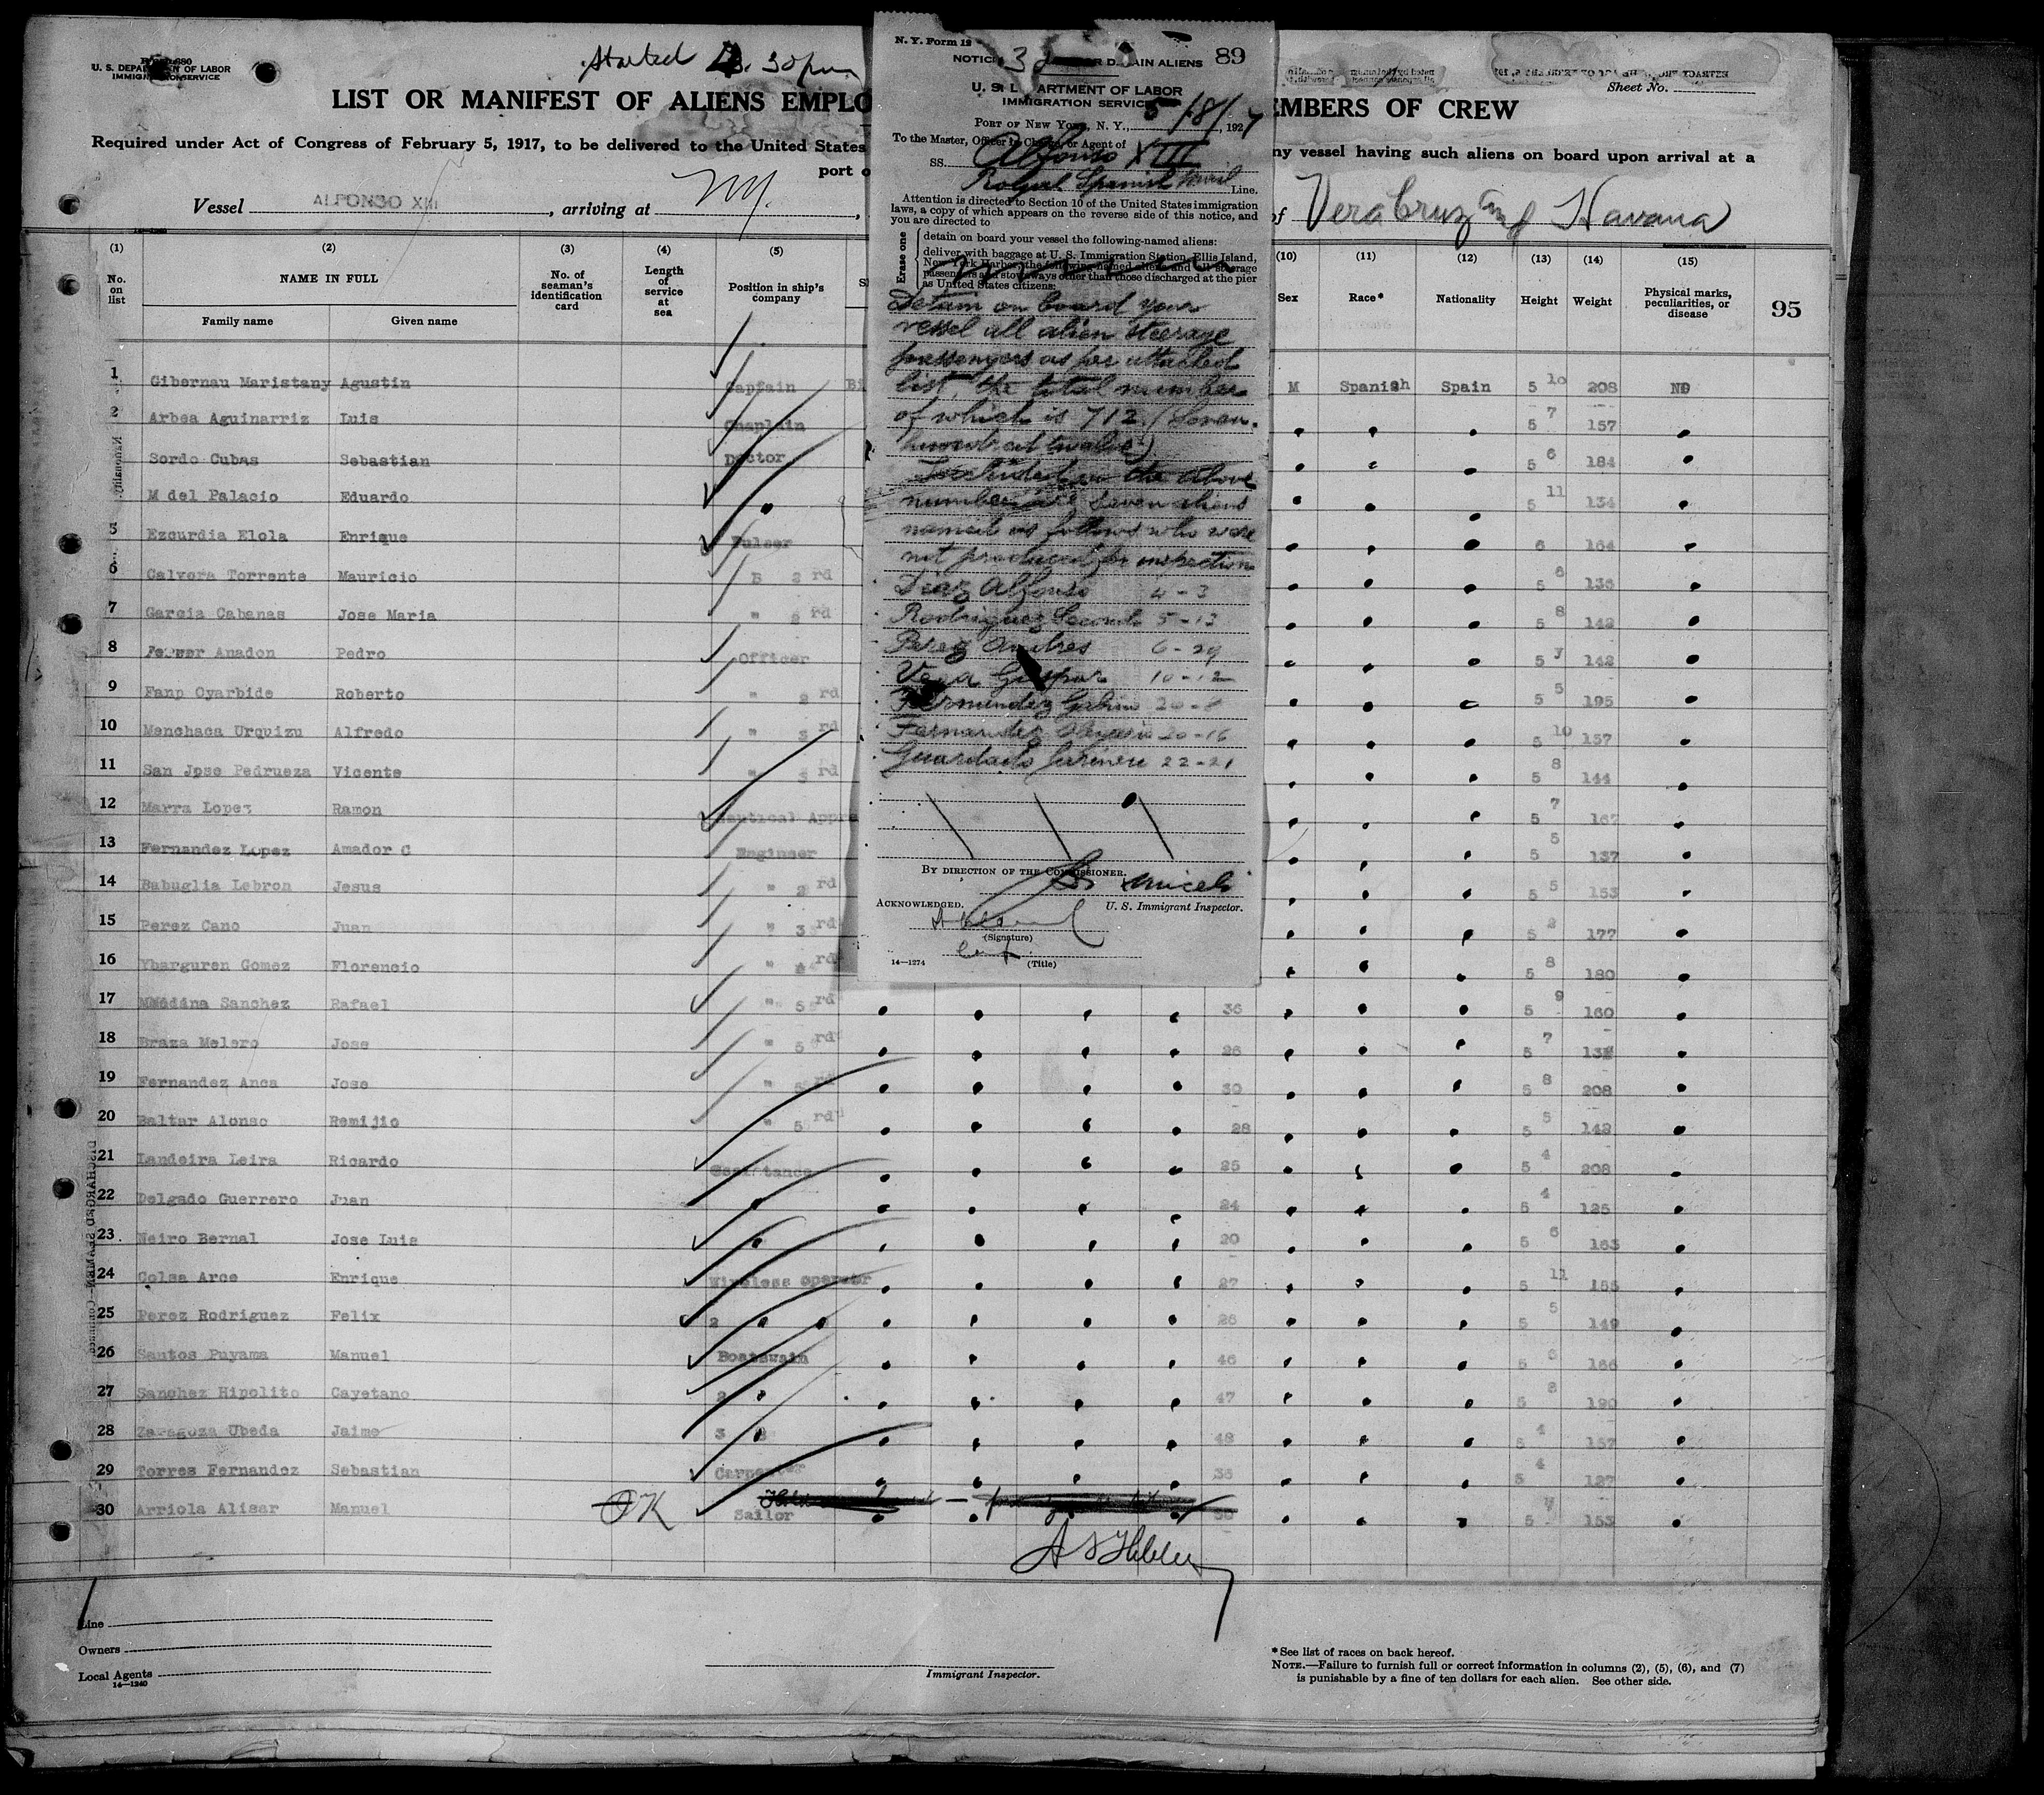 Started 3.30 pm
U. S. DEPARTMENT OF LABOR
IMMIGRATION SERVICE
LIST OR MANIFEST OF ALIENS EMPLO
EMBERS OF CREW
Sheet No.
Required under Act of Congress of February 5, 1917, to be delivered to the United States
ny vessel having such aliens on board upon arrival at a
port o
Vessel ALFONSO XIII, arriving at NY.,
of Vera Cruz and Havana
N. Y. Form 19
89
NOTICE DETAIN ALIENS
U. S. DEPARTMENT OF LABOR
IMMIGRATION SERVICE
PORT OF NEW YORK, N. Y., 5/18/, 1927
To the Master, Officer in Charge, or Agent of
SS. Alfonso XIII
Royal Spanish Mail Line.
Attention is directed to Section 10 of the United States immigration
laws, a copy of which appears on the reverse side of this notice, and
you are directed to
Erase one
detain on board your vessel the following-named aliens:
deliver with baggage at U. S. Immigration Station, Ellis Island,
New York Harbor, the following-named aliens and all steerage
passengers and stowaways other than those discharged at the pier
as United States citizens:
Detain on board your
vessel all alien steerage
passengers as per attached
list, the total number
of which is 712. (Seven
hundred twelve)
Included in the above
number are seven aliens
named as follows who were
not produced for inspection
Diaz Alfonso 4-3
Rodriguez 5-13
Perez Andres 6-29
Vega Gaspar 10-12
Fernandez
Fernandez 20-16
Guardado 22-21
BY DIRECTION OF THE COMMISSIONER.
U. S. Immigrant Inspector.
ACKNOWLEDGED.
(Signature)
(Title)
14—1274
(1) (2) (3) (4) (5) (10) (11) (12) (13) (14) (15)
No. on list
NAME IN FULL
Family name
Given name
No. of seaman's identification card
Length of service at sea
Position in ship's company
Sex
Race*
Nationality
Height
Weight
Physical marks, peculiarities, or disease
95
1 Gibernau Maristany Agustin Captain M Spanish Spain 5 10 208 NO
2 Arbea Aguinarriz Luis Chaplain 5 7 157
Sordo Cubas Sebastian Doctor 5 6 184
M del Palacio Eduardo " 5 11 134
5 Ezcurdia Elola Enrique Pulser 6 164
6 Calvera Torrente Mauricio 2 rd 5 6 135
7 Garcia Cabanas Jose Maria " rd 5 8 142
8 Ferrer Anadon Pedro Officer 5 7 142
9 Fano Oyarbide Roberto " 2 rd 5 5 195
10 Menchaca Urquizu Alfredo " 3 rd 5 10 157
11 San Jose Pedrueza Vicente " 3 rd 5 8 144
12 Marra Lopez Ramon Nautical Appre 5 7 167
13 Fernandez Lopez Amador C Engineer 5 5 137
14 Babuglia Lebron Jesus " 2 rd 5 5 153
15 Perez Cano Juan " 3 rd 5 2 177
16 Ybarguren Gomez Florencio " 4 rd 5 8 180
17 Meddna Sanchez Rafael " 5 rd 36 5 9 160
18 Braza Melero Jose " 5 rd 26 5 7
19 Fernandez Anca Jose " 5 rd 30 5 8 208
20 Baltar Alonso Remijio " 5 rd 28 5 5 142
21 Landeira Leira Ricardo 25 5 4 208
22 Delgado Guerrero Juan " 24 5 4 125
23 Neiro Bernal Jose Luis " 20 5 6 163
24 Colsa Arce Enrique Wireless operator 27 5 11 155
25 Perez Rodriguez Felix 2 " " 26 5 5 149
26 Santos Puyama Manuel Boatswain 46 5 6 166
27 Sanchez Hipolito Cayetano 2 " 47 5 8 190
28 Zaragoza Ubeda Jaime 3 " 48 5 4 157
29 Torres Fernandez Sebastian Carpenter 35 5 4 127
30 Arriola Alisar Manuel OK Sailor 30 5 7 153
Line
Owners
Local Agents
14—1240
Immigrant Inspector.
*See list of races on back hereof.
NOTE.—Failure to furnish full or correct information in columns (2), (5), (6), and (7)
is punishable by a fine of ten dollars for each alien. See other side.